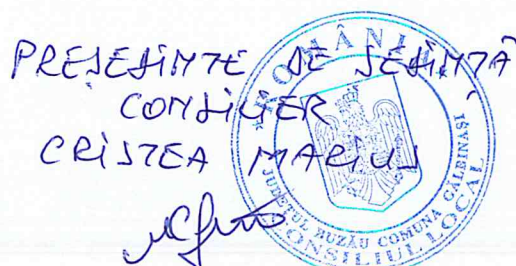 PREȘEDINTE DE ȘEDINȚĂ
CONSILIER
CRISTEA MARIUS
* ROMÂNIA *
JUDEȚUL BUZĂU COMUNA GĂLBINAȘI
CONSILIUL LOCAL